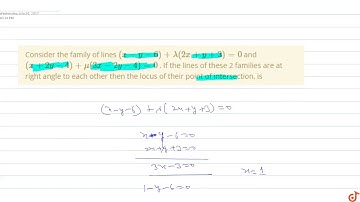 Consider the family of lines (x − y − 6) + λ(2x + y + 3) = 0 and
(x + 2y − 4) + μ(3x − 2y − 4) = 0 . if the lines of these 2 families are at
right angle to each other then the locus of their point of intersection, is
(x-y-6) + λ( 2x+y+3)=0
x-y-6=0
2x+y+3=0
3x-3=0
x=1
1-y-6=0